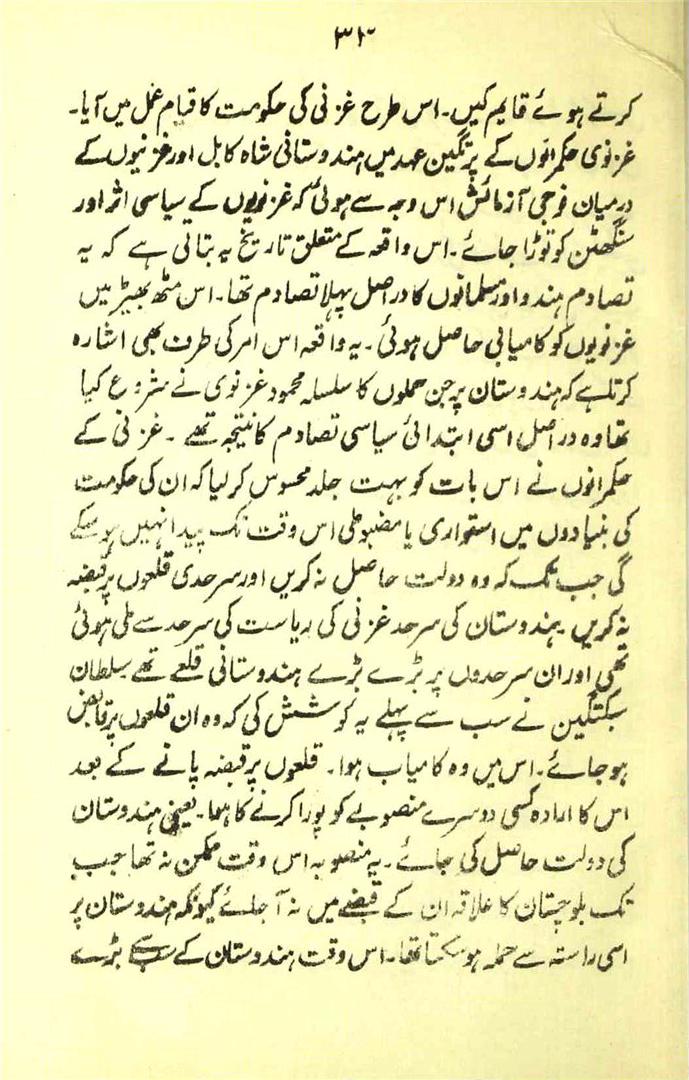 ۳۳
کرتے ہوئے قایم کیں۔ اس طرح غزنی کی حکومت کا قیام عمل میں آیا۔
غزنوی حکمرانوں کے پرتگین عہد میں ہندوستانی شاہ کابل اور غزنیوں کے
درمیان فوجی آزمائش اس وجہ سے ہوئی کہ غزنویوں کے سیاسی اثر اور
سنگھٹن کو توڑا جائے۔ اس واقعہ کے متعلق تاریخ یہ بتاتی ہے کہ یہ
تصادم ہندو اور مسلمانوں کا دراصل پہلا تصادم تھا۔ اس مٹھ بھیڑ میں
غزنویوں کو کامیابی حاصل ہوئی۔ یہ واقعہ اس امر کی طرف بھی اشارہ
کرتا ہے کہ ہندوستان پر جن حملوں کا سلسلہ محمود غزنوی نے شروع کیا
تھا وہ دراصل اسی ابتدائی سیاسی تصادم کا نتیجہ تھے ۔ غزنی کے
حکمرانوں نے اس بات کو بہت جلد محسوس کر لیا کہ ان کی حکومت
کی بنیادوں میں استواری یا مضبوطی اس وقت تک پیدا نہیں ہو سکے
گی جب تک کہ وہ دولت حاصل نہ کریں اور سرحدی قلعوں پر قبضہ
نہ کریں ۔ہندوستان کی سرحد غزنی کی ریاست کی سرحد سے ملی ہوئی
تھی اور ان سرحدوں پر بڑے بڑے ہندوستانی قلعے تھے سلطان
سبکتگین نے سب سے پہلے یہ کوشش کی کہ وہ ان قلعوں پر قابض
ہو جائے۔ اس میں وہ کامیاب ہوا۔ قلعوں پر قبضہ پانے کے بعد
اس کا ارادہ کسی دوسرے منصوبے کو پورا کرنے کا ہوا۔ یعنی ہندوستان
کی دولت حاصل کی جائے ۔ یہ منصوبہ اس وقت ممکن نہ تھا جب
تک بلوچستان کا علاقہ ان کے قبضے میں نہ آ جائے کیونکہ ہندوستان پر
اسی راستہ سے حملہ ہو سکتا تھا۔ اس وقت ہندوستان کے سب سے بڑے